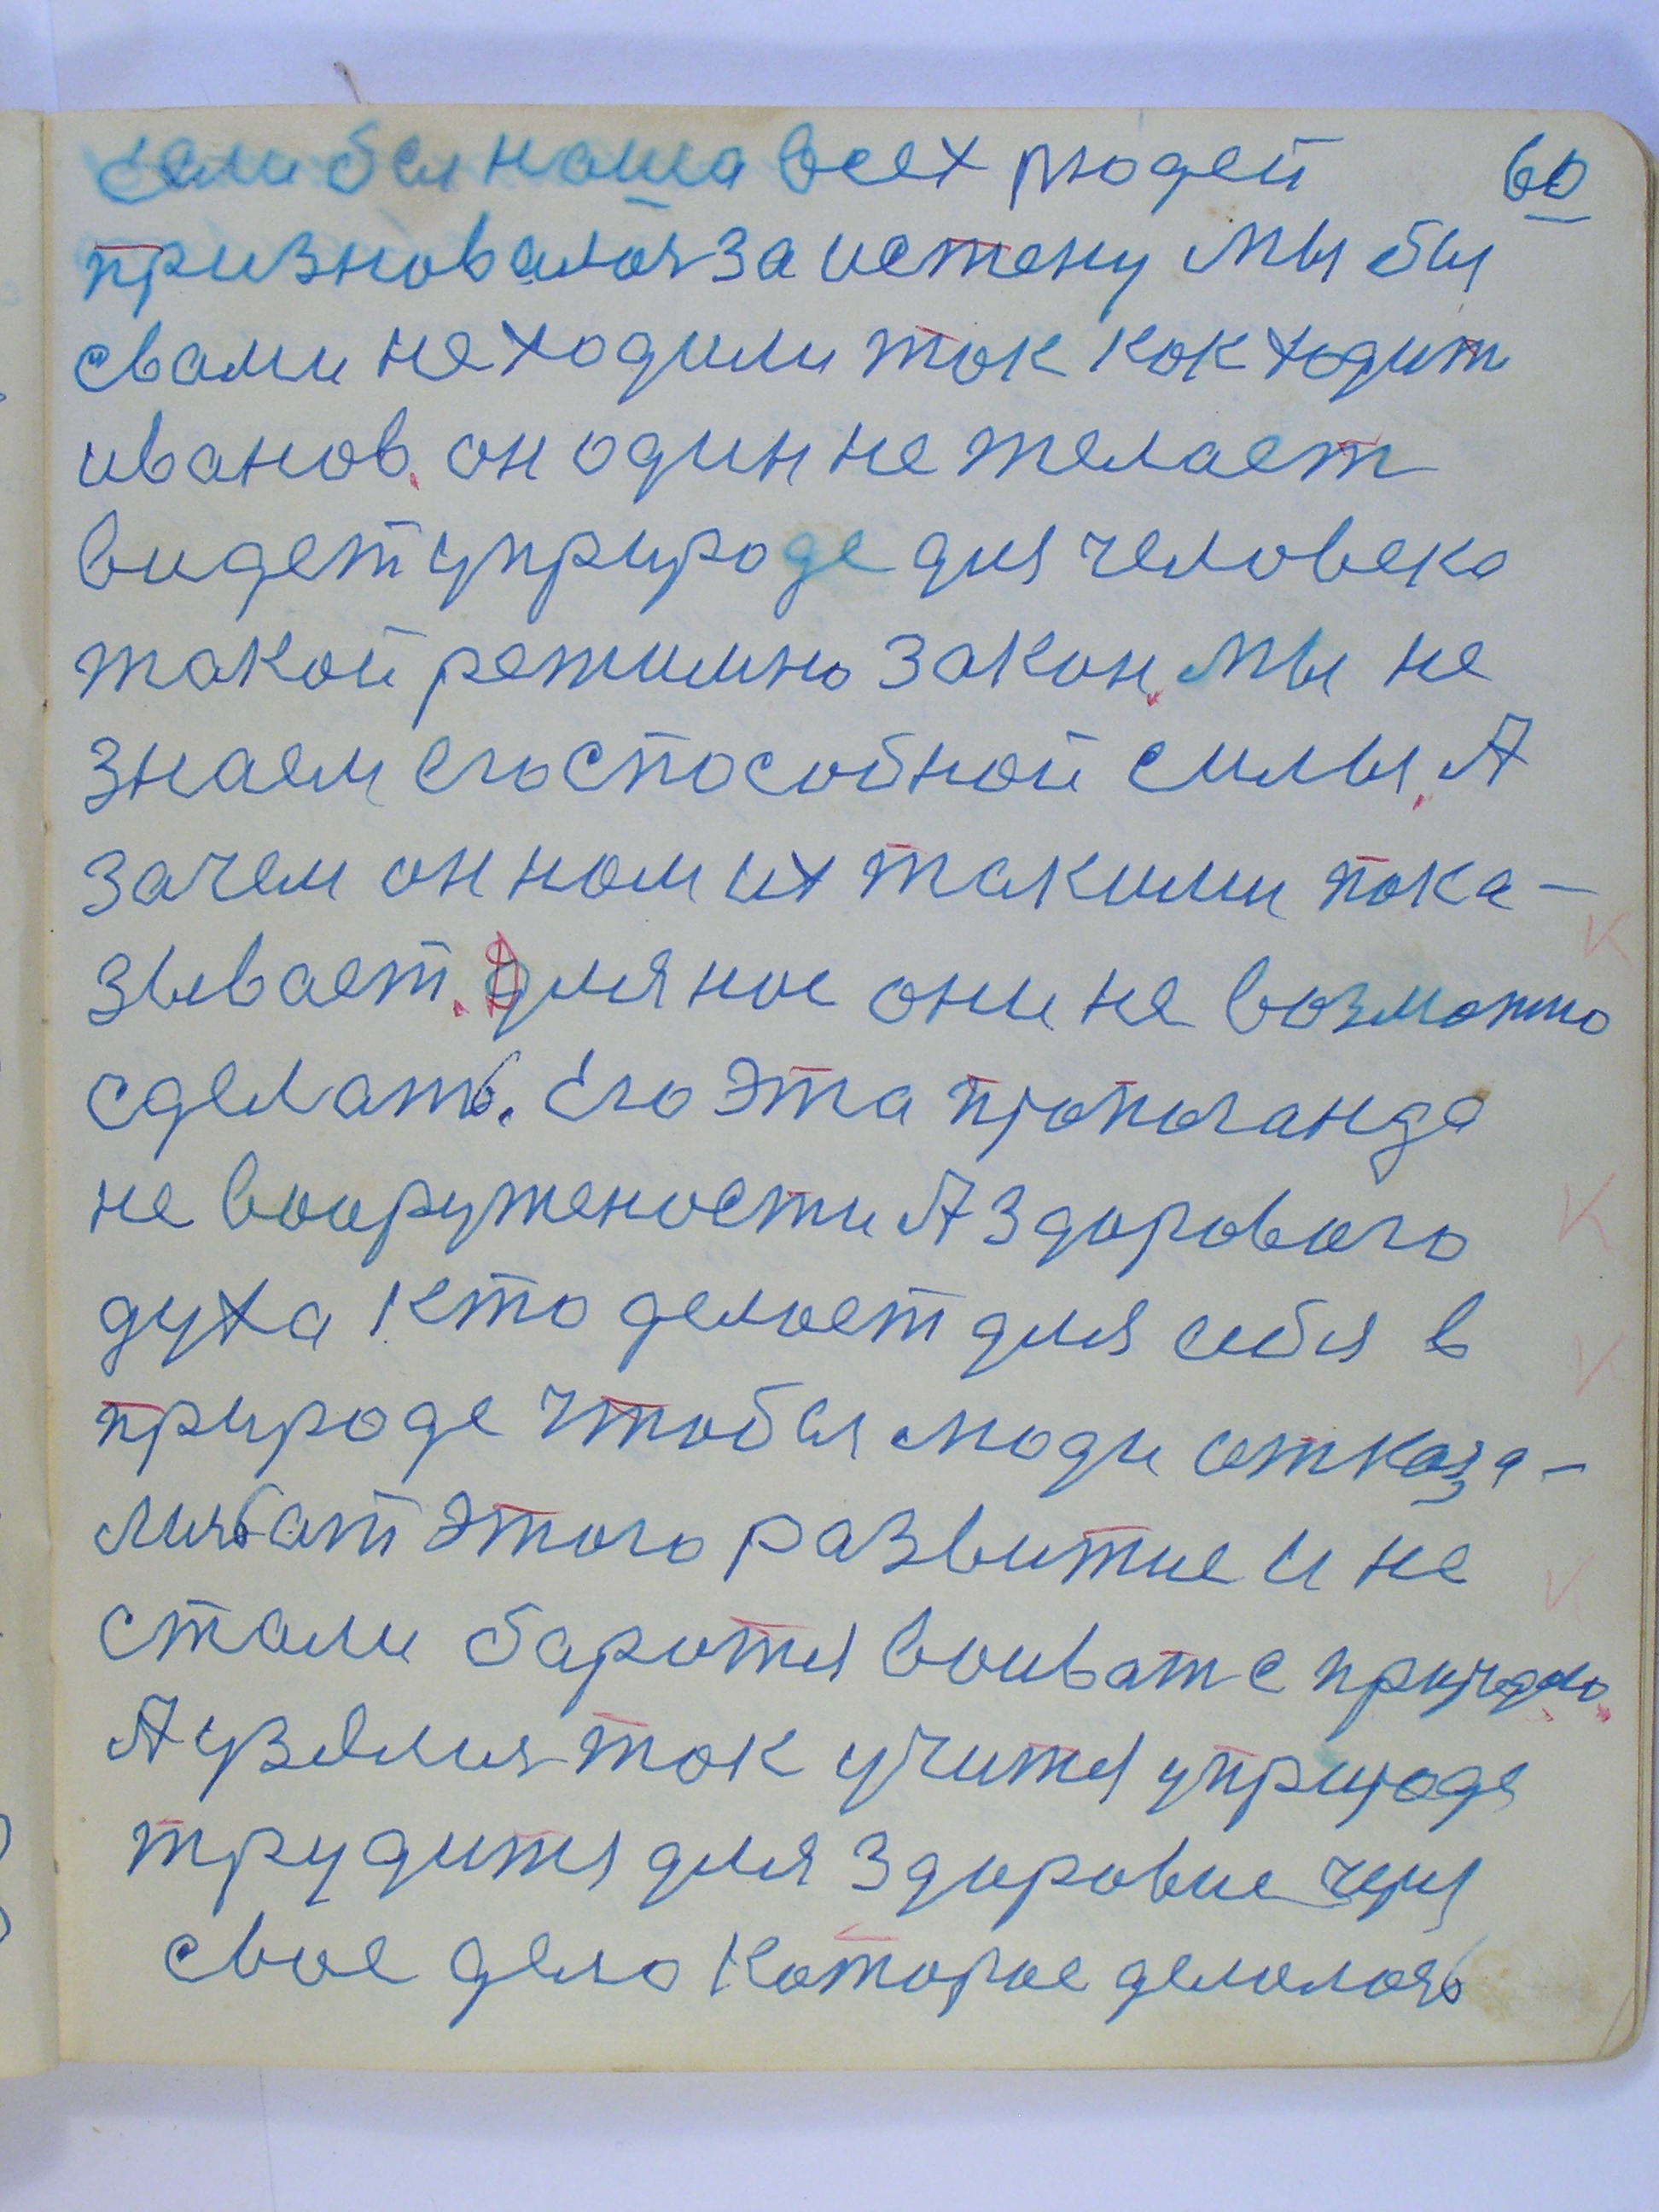 если бы наша всех людей 60
призновалоя за истену мы бы
свами не ходили ток кок ходит
иванов. он один не желает
видет уприроде для человека
такой режимно закон. мы не
знаем его способной силы. А
зачем он ном их такими пока-
зывает. Для нос они не возможно
сделать. Его эта пропоганда
не вооружености А здорового
духа кто делоет для себя в
природе чтобы люди отказа-
лись от этого развитие и не
стали баротся воиват с природою.
А узялися ток учится уприроде
трудится для здоровие чуя
свое дело которое делолось